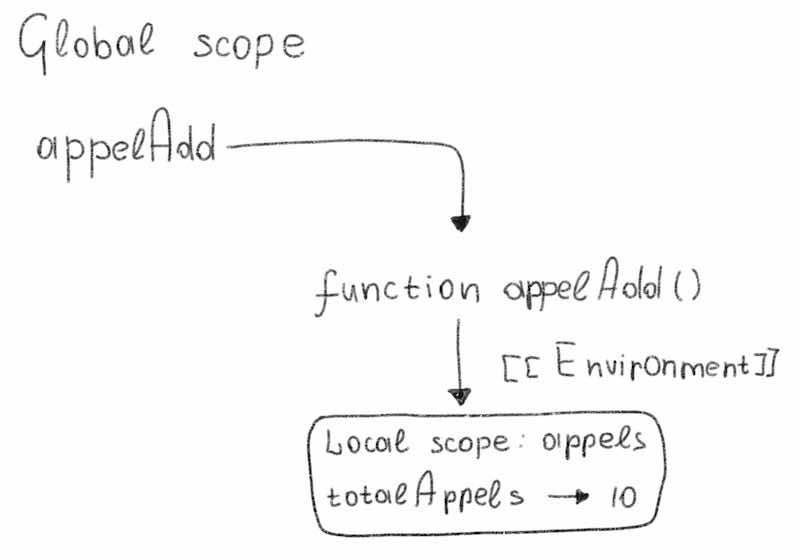 Global scope
appelAdd
function appelAdd()
[[Environment]]
Local scope: appels
totalAppels → 10